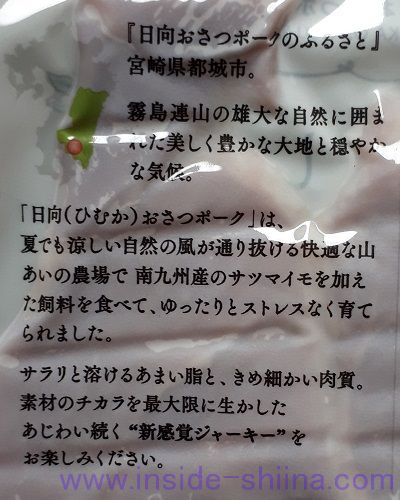 『日向おさつポークのふるさと』
宮崎県都城市。
霧島連山の雄大な自然に囲ま
れた美しく豊かな大地と穏やか
な気候。
「日向(ひむか)おさつポーク」は、
夏でも涼しい自然の風が通り抜ける快適な山
あいの農場で 南九州産のサツマイモを加え
た飼料を食べて、ゆったりとストレスなく育て
られました。
サラリと溶けるあまい脂と、きめ細かい肉質。
素材のチカラを最大限に生かした
あじわい続く“新感覚ジャーキー”を
お楽しみください。
www.inside-shiina.com